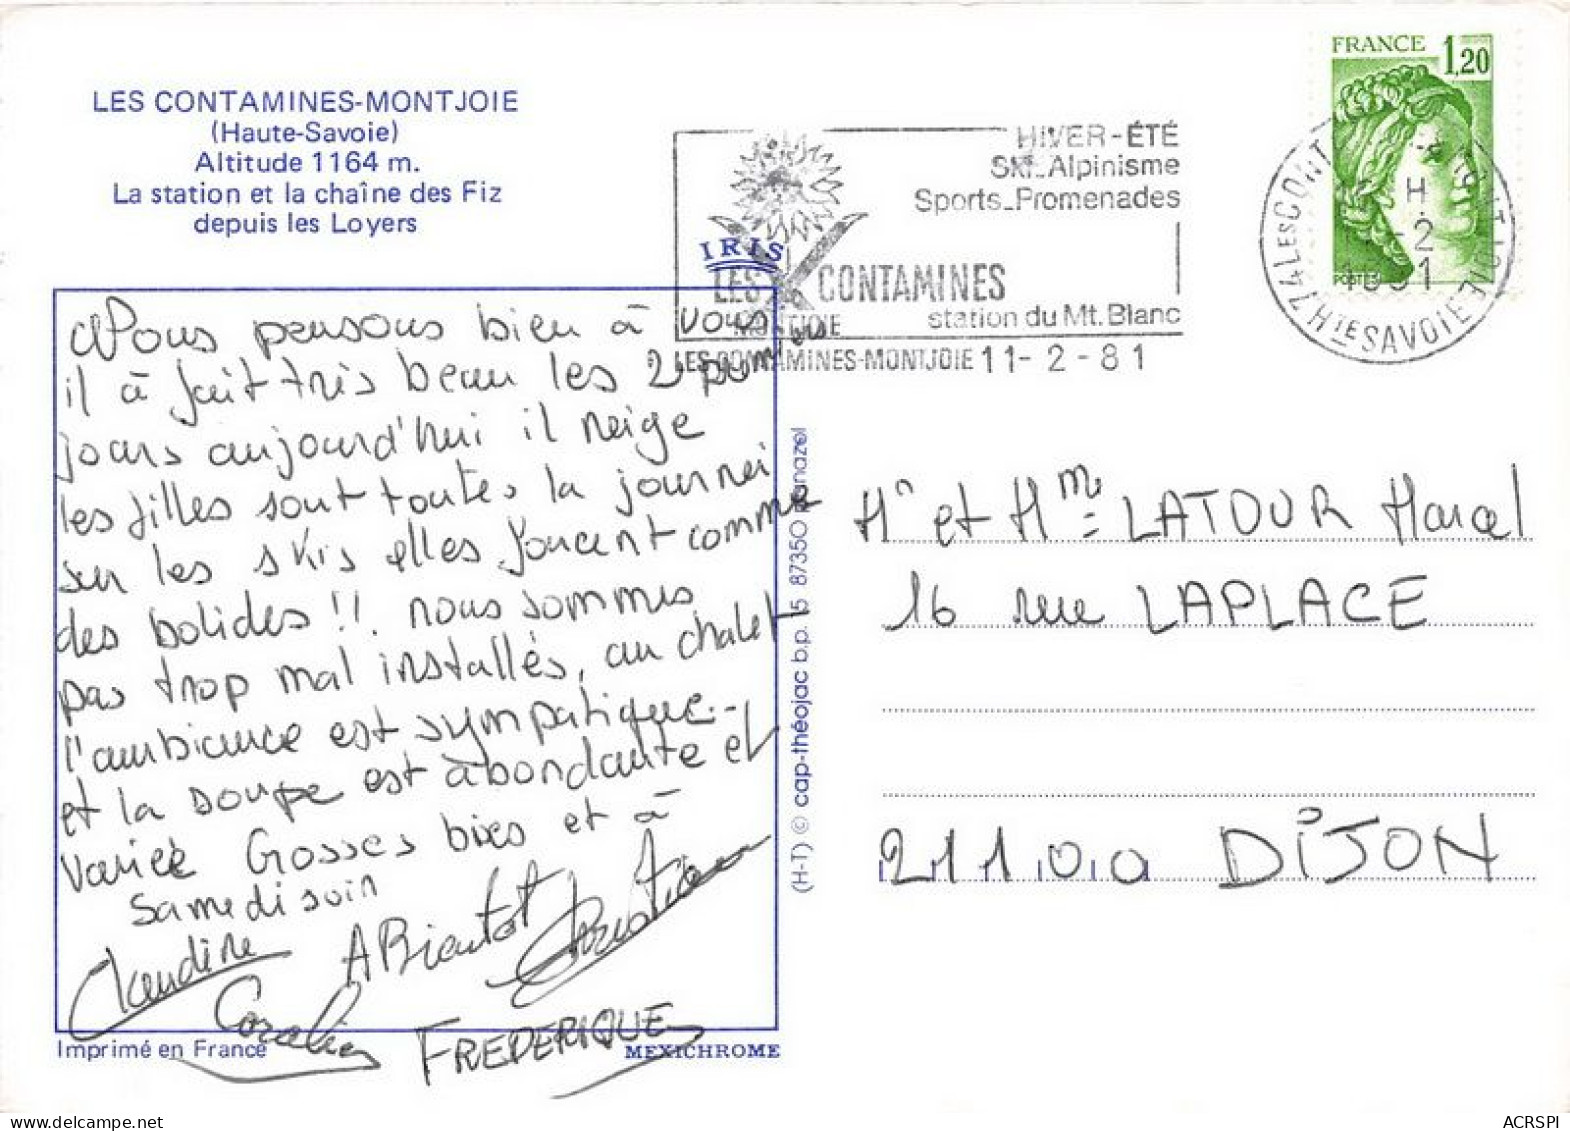 LES CONTAMINES-MONTJOIE
(Haute-Savoie)
Altitude 1164 m.
La station et la chaîne des Fiz
depuis les Loyers
IRIS
Nous pensons bien à vous
il à fait très beau les 2 premiers
jours aujourd'hui il neige
les filles sont toutes la journei
sur les skis elles foncent comme
des bolides !!. nous sommes
pas trop mal installés, au chalet
l'ambiance est sympatique -
et la soupe est àbondante et
variée Grosses bises et à
samedi soir
Claudine
A Bientot
Christian
Coralie
FREDERIQUE
Imprimé en France
MEXICHROME
(H-T) © cap-théojac b.p. 15 87350 panazol
HIVER-ÉTÉ
Ski_Alpinisme
Sports_Promenades
LES CONTAMINES
MONTJOIE
station du Mt. Blanc
LES CONTAMINES-MONTJOIE 11-2-81
FRANCE 1,20
POSTES
74 LES CONT MONTJOIE
H
-2
1981
HTE SAVOIE
Mr et Mme LATOUR Marcel
16 rue LAPLACE
21100 DIJON
ACRSPI